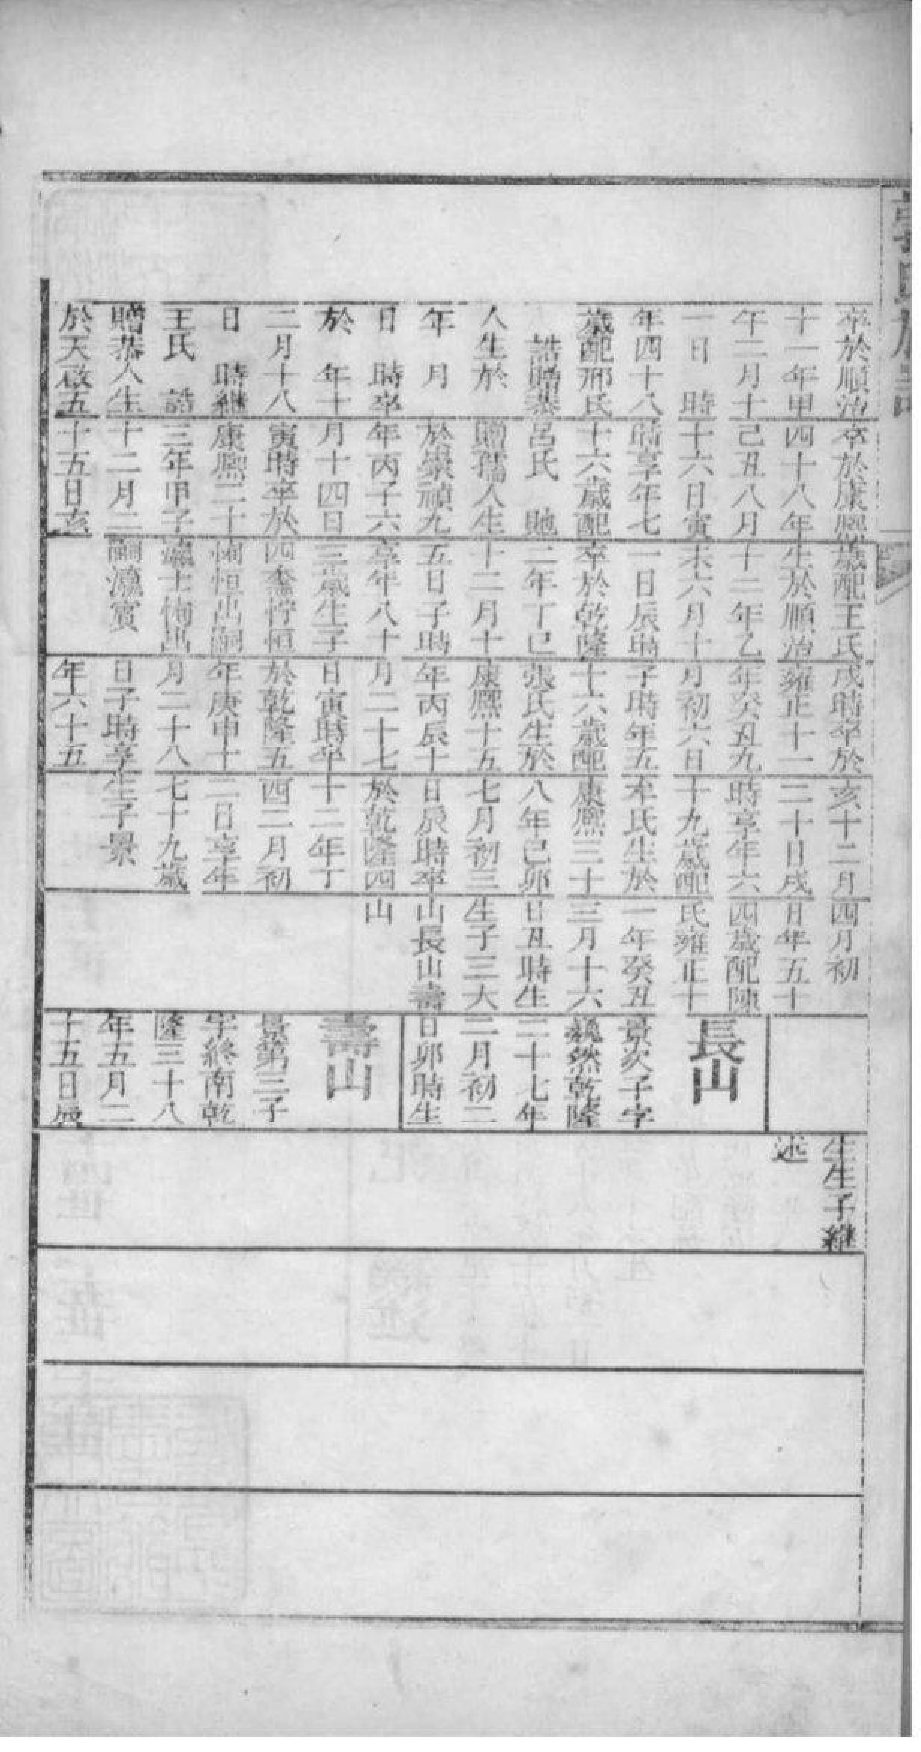 卒於順治
十一年甲
午二月十
一日　時
年四十八
歲配邢氏
誥贈恭
人生於
年　月
日　時卒
於　年十
二月十八
日　時繼
王氏　誥
贈恭人生
於天啟五
卒於康熙
四十八年
己丑八月
十六日寅
時享年七
十六歲配
呂氏　貤
贈孺人生
於崇禎九
年丙子六
月十四日
寅時卒於
康熙二十
三年甲子
十二月二
十五日亥
歲配王氏
生於順治
十二年乙
未六月十
一日辰時
卒於乾隆
二年丁巳
十二月十
五日子時
享年八十
三歲生子
四喬恒
恒出嗣
瀛士恂出
嗣瀛賓
戌時卒於
雍正十一
年癸丑九
月初六日
子時年五
十六歲配
張氏生於
康熙十五
年丙辰十
月二十七
日寅時卒
於乾隆五
年庚申十
月二十八
日子時享
年六十五
亥十二月
二十日戌
時享年六
十九歲配
牟氏生於
康熙三十
八年己卯
七月初三
日辰時卒
於乾隆四
十二年丁
酉二月初
二日享年
七十九歲
生子景
四月初
日年五十
四歲配陳
氏雍正十
一年癸丑
三月十六
日丑時生
生子三大
山長山壽
山
長山
景次子字
巍然乾隆
二十七年
二月初二
日卯時生
壽山
景第三子
字終南乾
隆三十八
年五月二
十五日辰
生生子繼
述